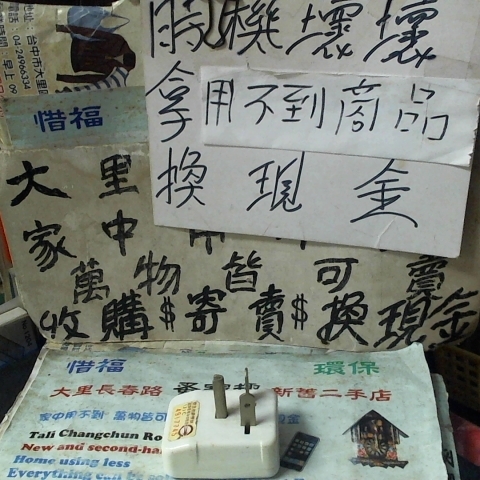 地址：台中市大里
電話：04 24966334
時間：早上 09
時機壞壞
惜福
拿用不到商品
換現金
大里
家中用
萬物皆可賣
收購$寄賣$換現金
惜福 環保
大里長春路 新舊二手店
家中用不到 萬物皆可 金
Tali Changchun Ro
New and second-ha
Home using less
Everything can be